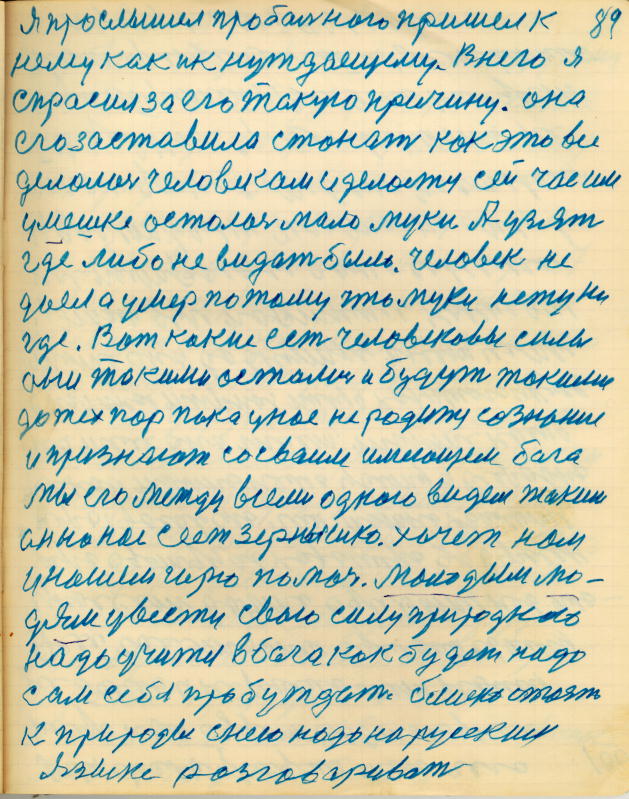 Я прослышел про бального пришел к 89
нему как и к нуждаещему. В него я
спрасил за его такую причину. она
его заставила стонат как это все
делалось человекам и делаеты сей час им
умешке осталось мало муки А узят
где либо не видат было. человек не
доел а умер потому что муки нету ни
где. Вот какие ест человековы силы
они такими остались и будут такими
до тех пор пока у нас не родиты сознание
и признают сосваим имеющем бога
мы его между всеми одного видем таким
он на нас сеет зернышко. хочет нам
унашем горю помоч. молодым лю-
дям увести свою силу природною
надо учиты в бога как будет надо
сам себя пробуждат. близко стоят
к природы снею надо на русским
языке разговариват